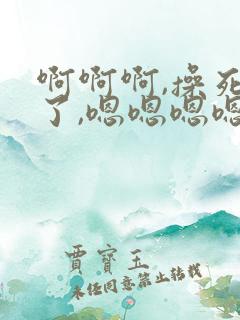 啊啊啊,操死
了,嗯嗯嗯嗯
贾宝玉
未经同意禁止转载